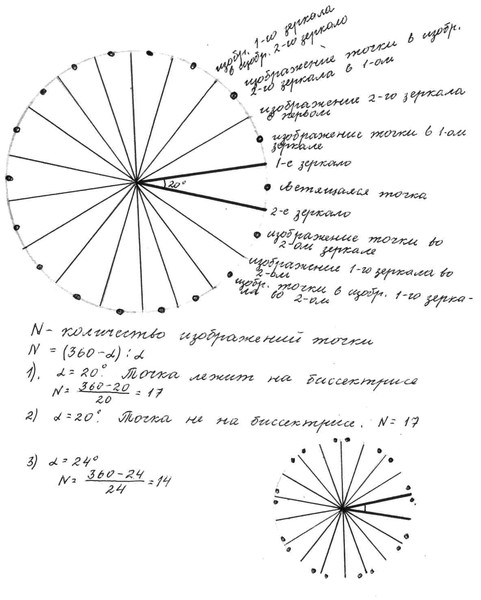 изобр. 1-го зеркала
в изобр. 2-го зеркало
изображение точки в изобр.
2-го зеркала в 1-ом
изображение 2-го зеркала
в первом
изображение точки в 1-ом
зеркале
1-е зеркало
20°
светящаяся точка
2-е зеркало
изображение точки во
2-ом зеркале
изображение 1-го зеркала во
2-ом
изобр. точки в изобр. 1-го зерка-
ла во 2-ом
N - количество изображений точки
N = (360-α) : α
1). α = 20°. Точка лежит на биссектрисе
N = 360-20 / 20 = 17
2) α = 20°. Точка не на биссектрисе. N = 17
3) α = 24°
N = 360-24 / 24 = 14